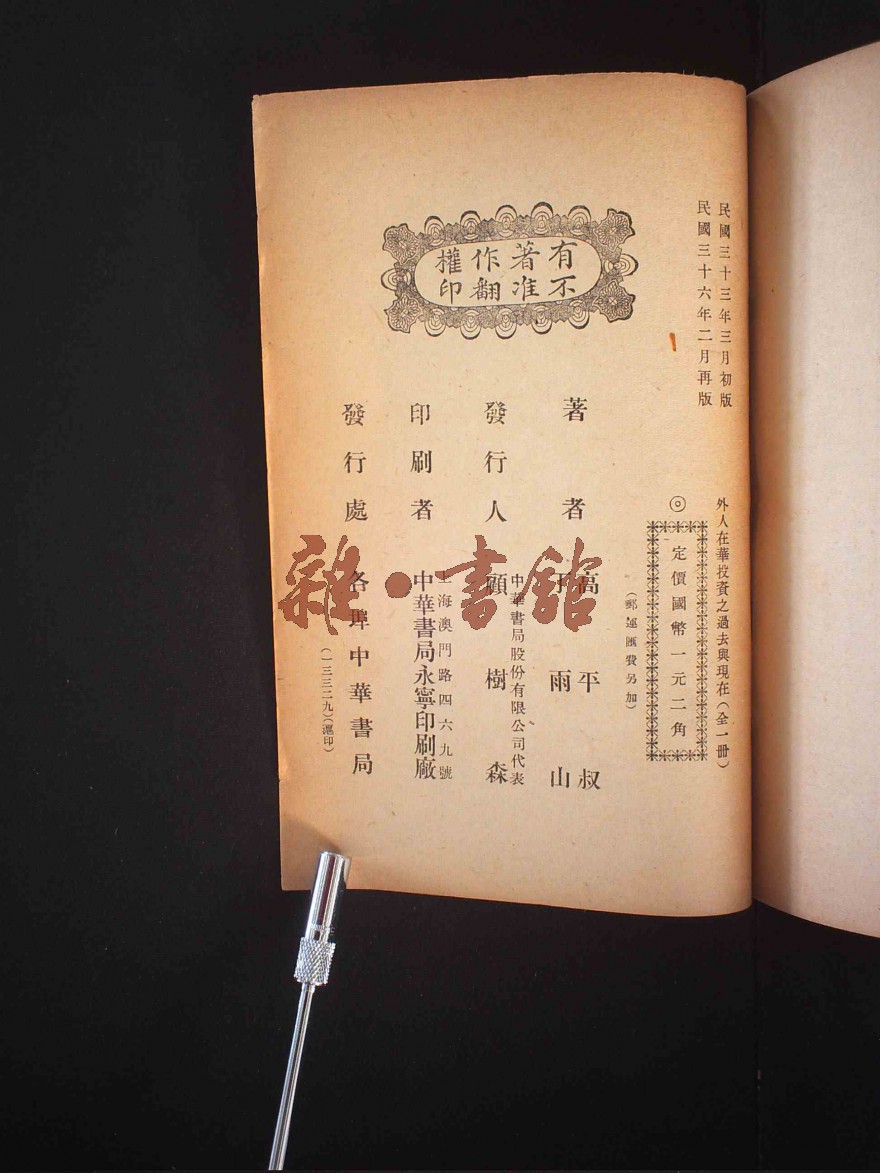 民國三十三年三月初版
民國三十六年二月再版
外人在華投資之過去與現在(全一冊)
◎定價國幣一元二角
(郵運匯費另加)
有著作權
不准翻印
著者 高平叔
雨山
發行人 中華書局股份有限公司代表
顧樹森
印刷者 上海澳門路四六九號
中華書局永寧印刷廠
發行處 各埠中華書局
(一三三二九)(滬印)
雜·書館